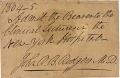 1804-5
Admit the Bearer to the
Clinical Lectures in the
New York Hospital
John R B Rodgers M.D.